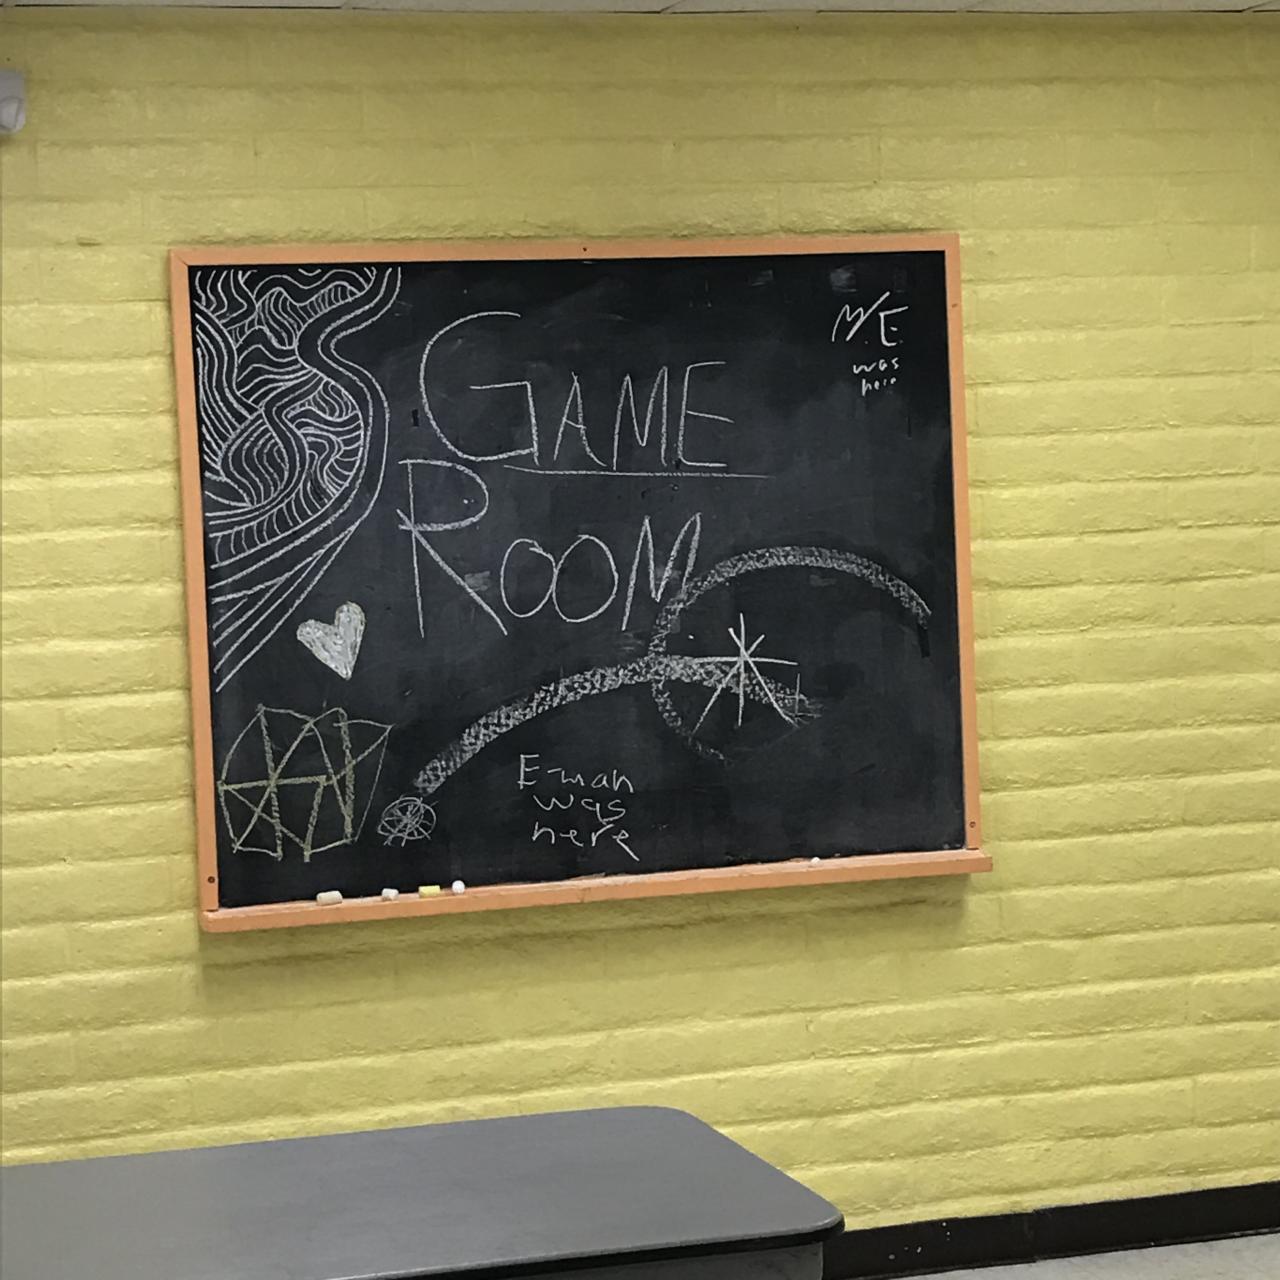 GAME
ROOM
M/E.
was
here
E-man
was
here